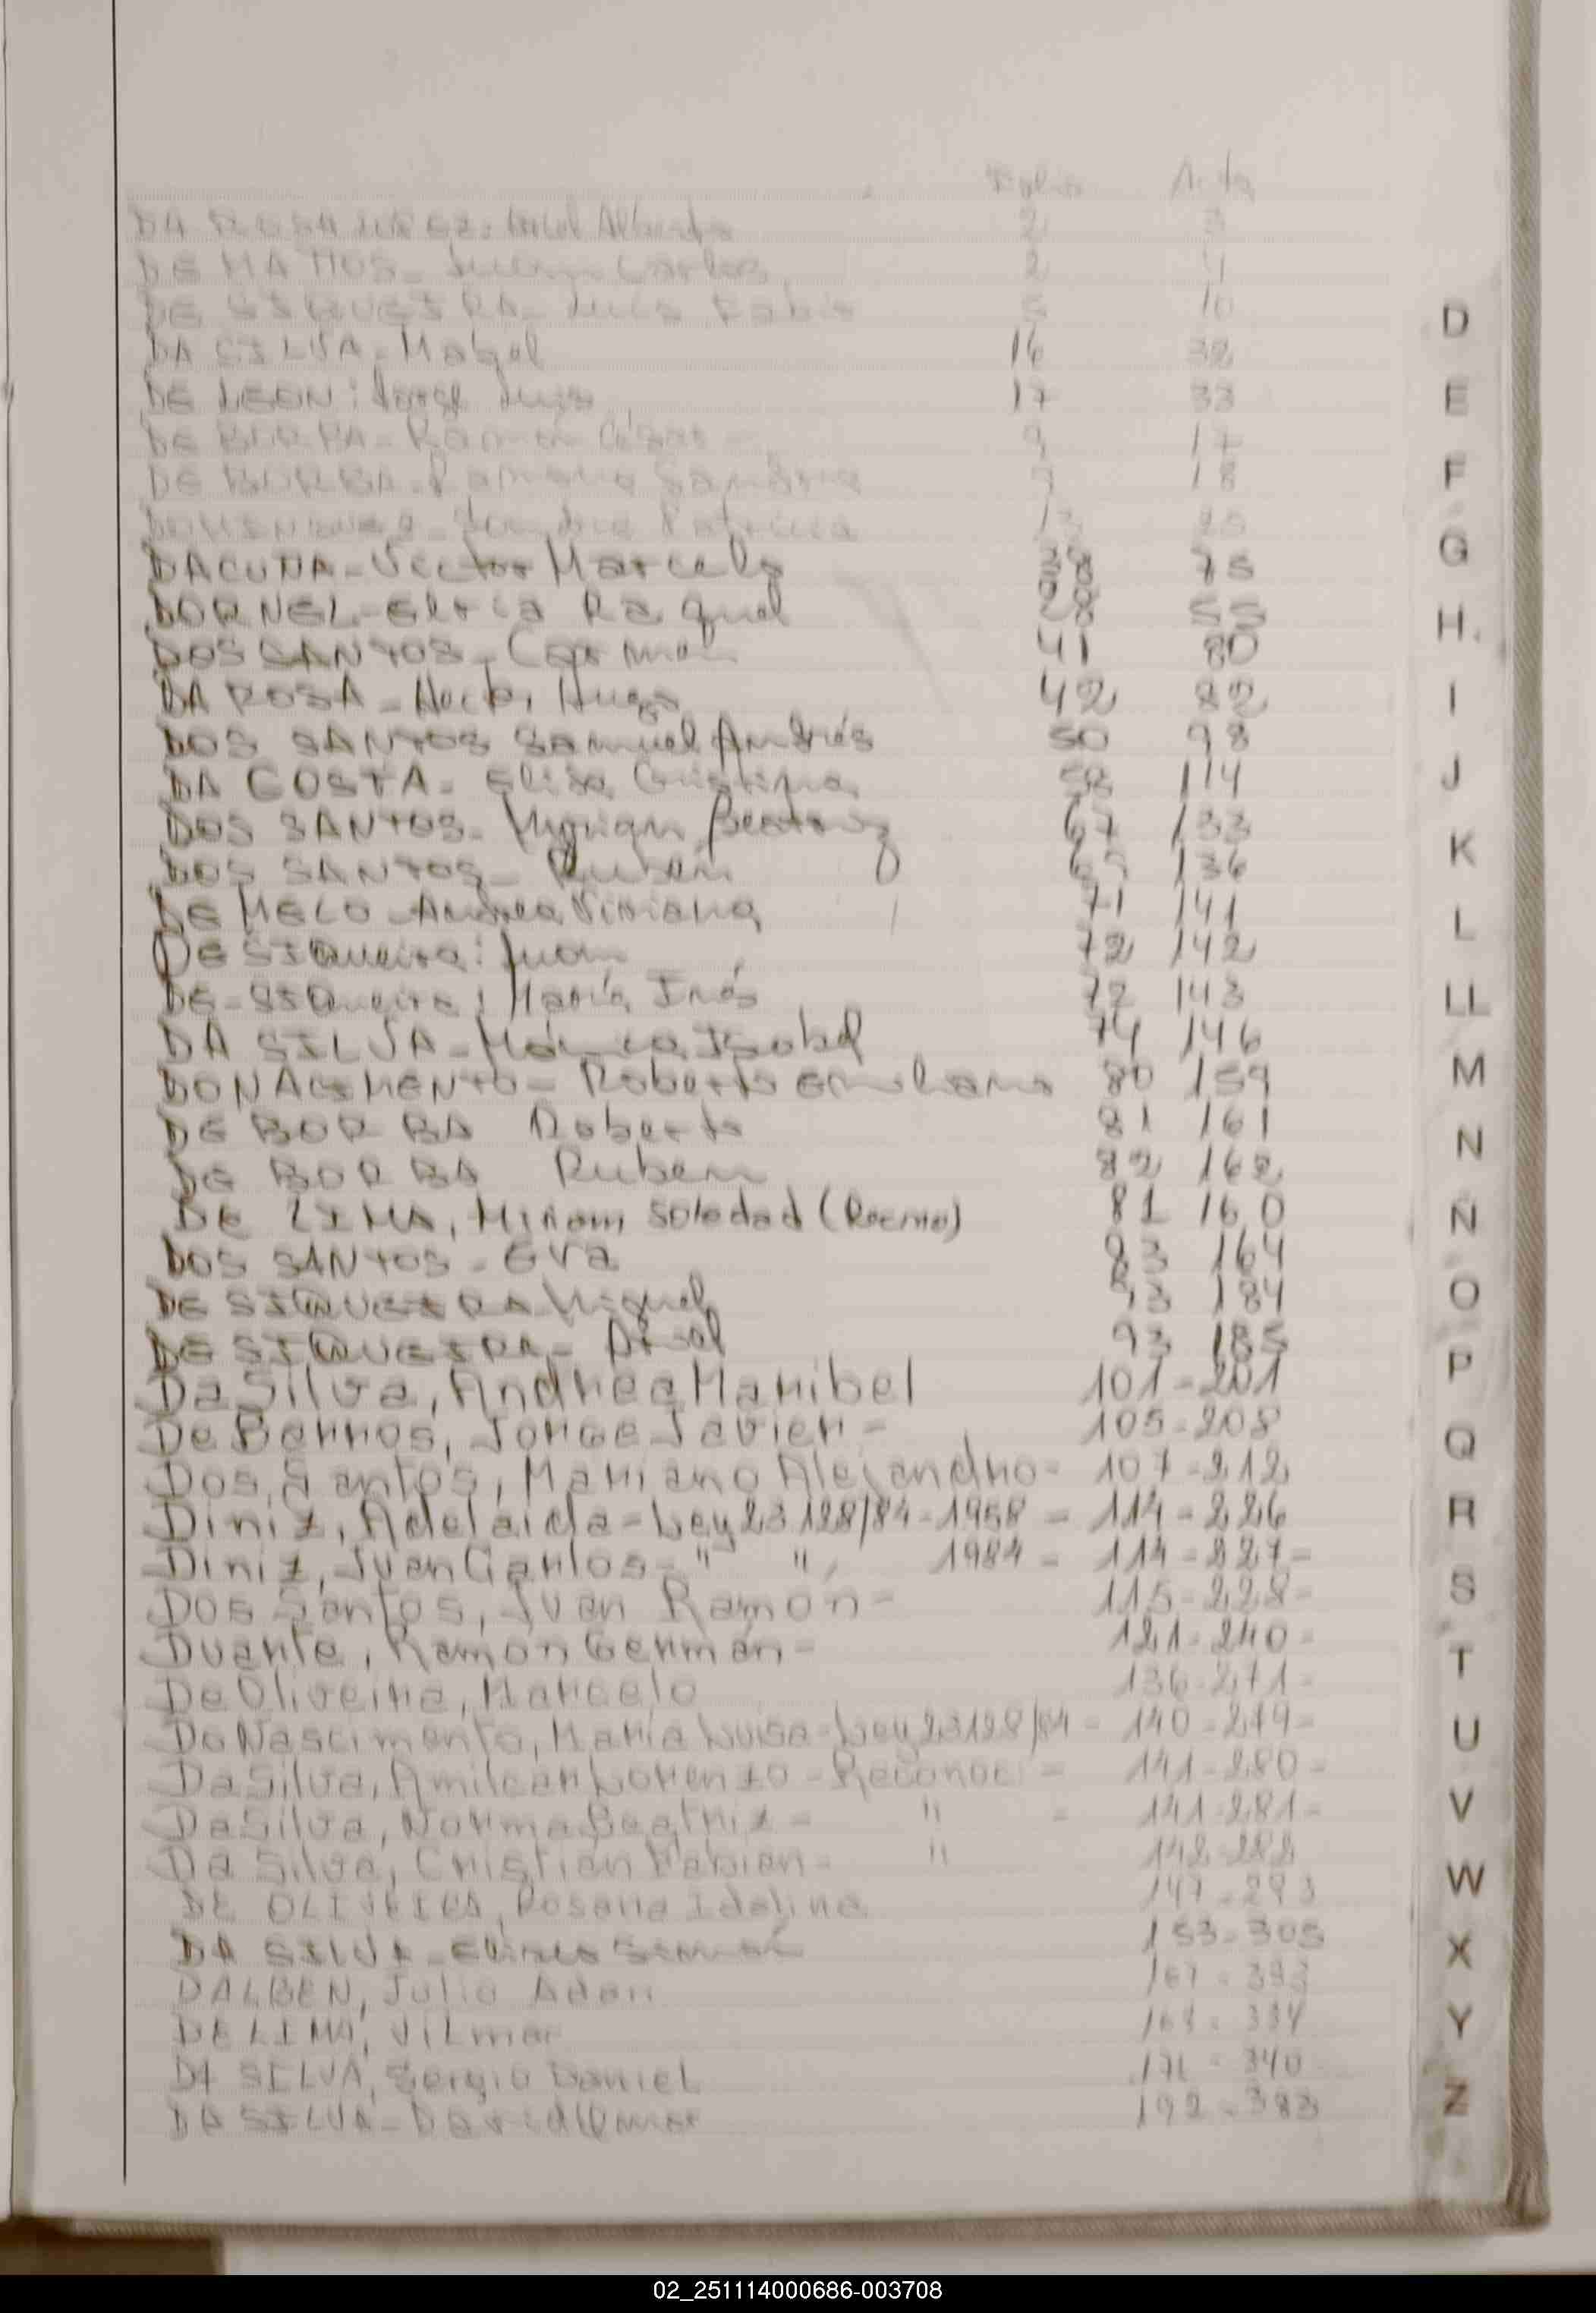 Folio Acta
DA ROSA Alberto 2 3
DE MATTOS - Juan Carlos 2 4
DE SIQUEIRA - Luis Fabio 5 10
DA SILVA - Mabel 16 32
DE LEON: Jorge Luis 17 33
DE BORBA - Ramón César - 9 17
DE BORBA - Ramona Sandra 9 18
Patricia 13
DACUÑA - Victor Marcelo 38 75
DORNEL - Raquel 28 55
DOS SANTOS - 41 80
DA ROSA - Hector Hugo 42 82
DOS SANTOS Samuel Andrés 50 98
DA COSTA - Elisa Cristina 58 114
DOS SANTOS - Myrian Beatriz 67 133
DOS SANTOS - Ruben 136
DE MELO - Andrea Viviana 71 141
DE SIQueira: Juan 72 142
DE - SIQueira: María Inés 72 143
DA SILVA - Mónica Isabel 74 146
DONACIMENTO - Roberto Emiliano 80 159
DE BORBA Roberto 81 161
DE BORBA Ruben 82 162
DE LIMA, Miriam Soledad 81 160
DOS SANTOS - Eva 83 164
DE SIQUEIRA Miguel 93 184
DE SIQUEIRA - Ariel 93 185
DaSilva, Andrea Maribel 101 - 201
De Barros, Jorge Javier - 105 - 208
Dos Santos, Mariano Alejandro - 107 - 212
Diniz, Adelaida - Ley 23128/84 - 1958 - 114 - 226
Diniz, Juan Carlos - " ", 1984 - 114 - 227 -
Dos Santos, Juan Ramón - 115 - 228 -
Duarte, Ramón Germán - 121 - 240 -
De Oliveira, Marcelo 136 - 271 -
Do Nascimento, María Luisa - Ley 23128/84 - 140 - 279 -
DaSilva, Amilcar Lorenzo - Reconoc - 141 - 280 -
DaSilva, Norma Beatriz - " - 141 - 281 -
Da Silva, Cristian Fabian - " 142 - 282
DE OLIVEIRA, Rosana Idalina 147 - 293
DA SILVA - 153 - 305
DALBEN, Julio Adan 167 - 333
DE LIMA, Vilmar 168 - 334
DA SILVA, Sergio Daniel 171 - 340
DA SILVA - David Omar 192 - 383
D
E
F
G
H
I
J
K
L
LL
M
N
Ñ
O
P
Q
R
S
T
U
V
W
X
Y
Z
02_251114000686-003708